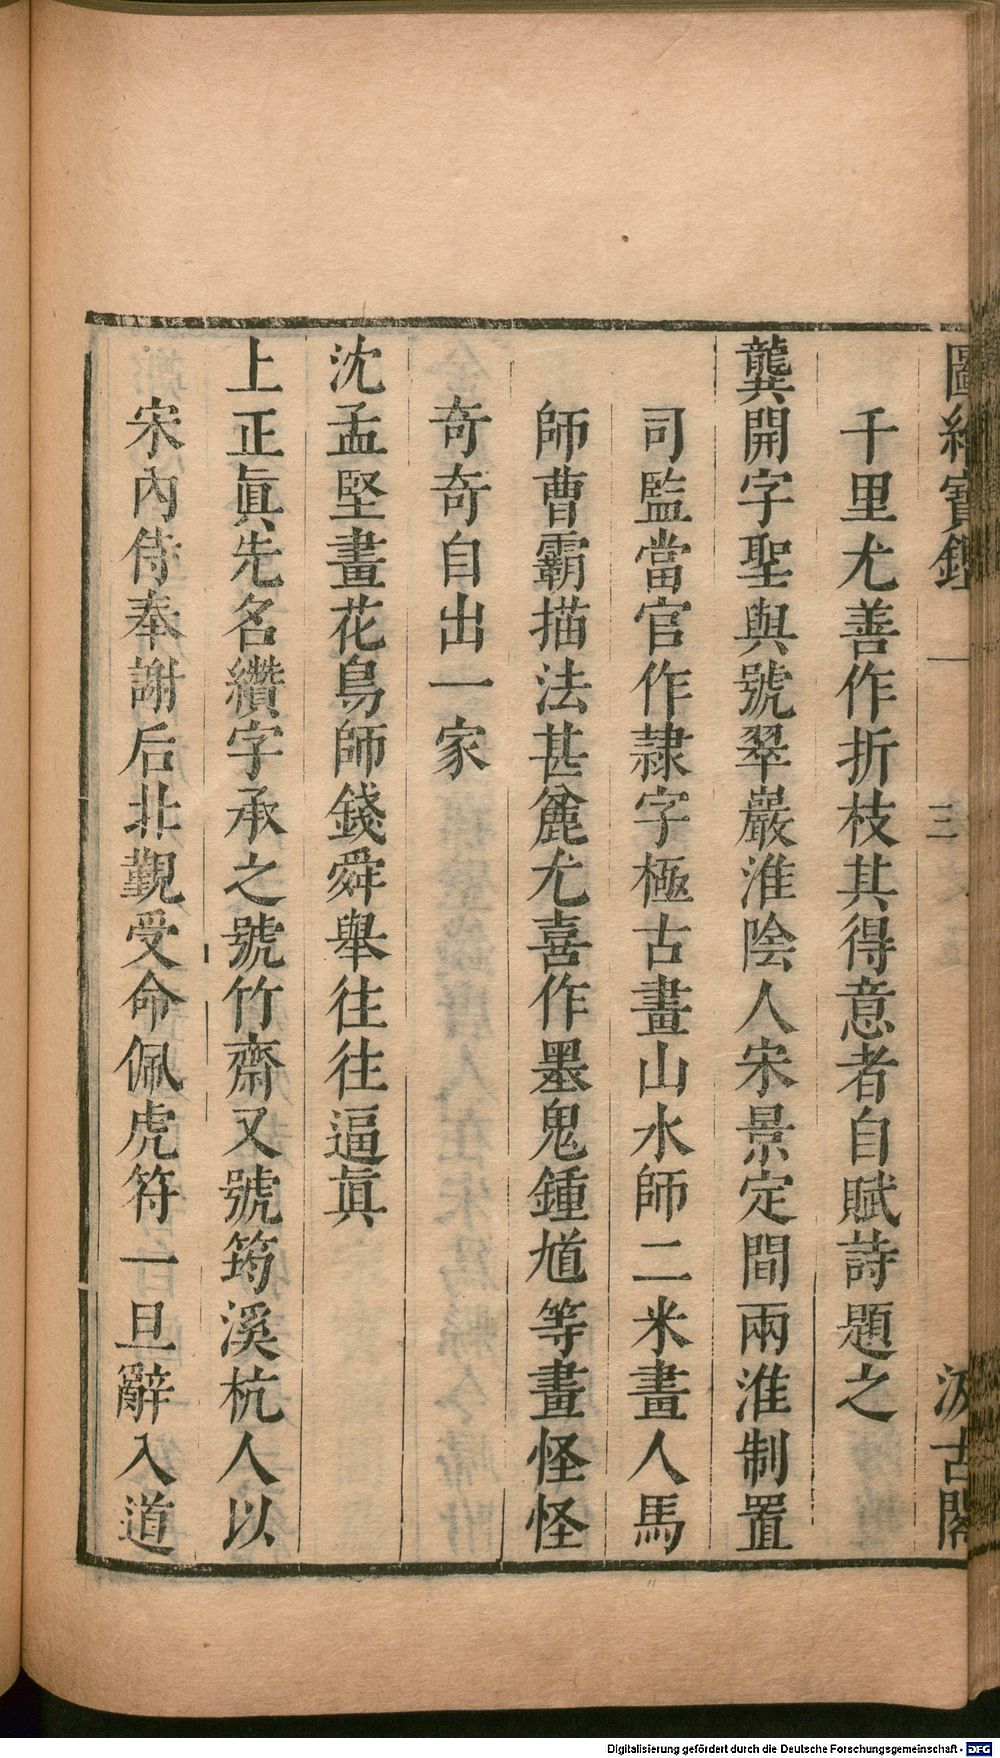 圖繪寶鑑 一 三 汲古閣
千里尤善作折枝其得意者自賦詩題之
龔開字聖與號翠巖淮陰人宋景定間兩淮制置
司監當官作隸字極古畫山水師二米畫人馬
師曹霸描法甚麄尤喜作墨鬼鍾馗等畫怪怪
奇奇自出一家
沈孟堅畫花鳥師錢舜舉往往逼眞
上正眞先名纘字承之號竹齋又號筠溪杭人以
宋內侍奉謝后北覲受命佩虎符一旦辭入道
Digitalisierung gefördert durch die Deutsche Forschungsgemeinschaft - DFG